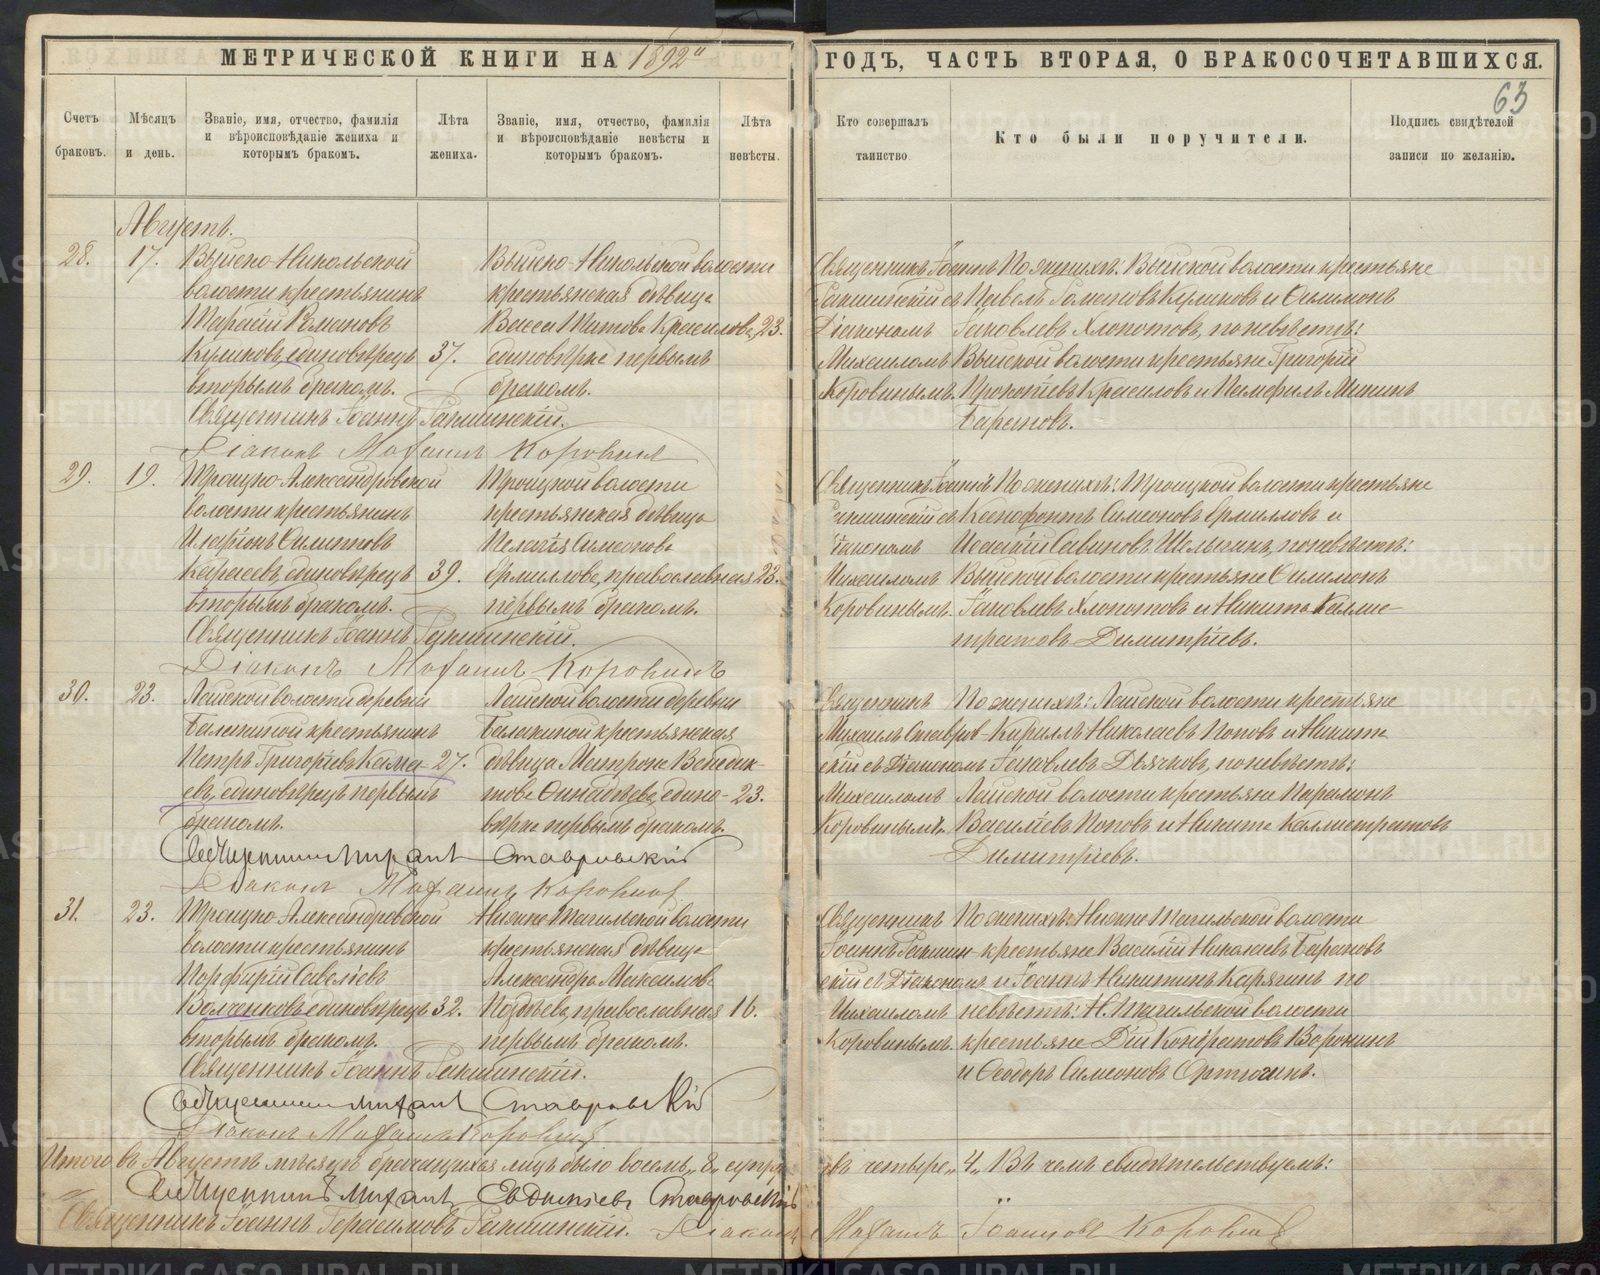 МЕТРИЧЕСКОЙ КНИГИ НА 1892й ГОДЪ, ЧАСТЬ ВТОРАЯ, О БРАКОСОЧЕТАВШИХСЯ.
63
Счетъ браковъ.
Мѣсяцъ и день.
Званіе, имя, отчество, фамилія
и вѣроисповѣданіе жениха и
которымъ бракомъ.
Лѣта жениха.
Званіе, имя, отчество, фамилія
и вѣроисповѣданіе невѣсты и
которымъ бракомъ.
Лѣта невѣсты.
Кто совершалъ таинство
Кто были поручители.
Подпись свидѣтелей
записи по желанію.
Августъ.
28. 17.
Выйско-Никольской
волости крестьянинъ
Тарасій Романовъ
Куликовъ, единовѣрецъ 37.
вторымъ бракомъ.
Выйско-Никольской волости
крестьянская дѣвица
Васса Титова Красилова, 23.
единовѣрка первымъ
бракомъ.
Священникъ Іоаннъ
Ракшинскій съ
Діакономъ
Михаиломъ
Коровинымъ.
По женихѣ: Выйской волости крестьяне
Павелъ Романовъ Куликовъ и Филимонъ
Іаковлевъ Хлопотовъ, по невѣстѣ:
Выйской волости крестьяне Григорій
Прокопіевъ Красиловъ и Памфилъ Мининъ
Барановъ.
Священникъ Іоаннъ Ракшинскій.
Діаконъ Михаилъ Коровинъ
29. 19.
Троицко-Александровской
волости крестьянинъ
Иларіонъ Филиповъ
Карасевъ, единовѣрецъ 39.
вторымъ бракомъ.
Троицкой волости
крестьянская дѣвица
Пелагія Симеонова
Ермилова, православная 23.
первымъ бракомъ.
Священникъ Іоаннъ
Ракшинскій съ
Діакономъ
Михаиломъ
Коровинымъ.
По женихѣ: Троицкой волости крестьяне
Ксенофонтъ Симеоновъ Ермиловъ и
Исаакій Савиновъ Шелыгинъ, по невѣстѣ:
Выйской волости крестьяне Филимонъ
Іаковлевъ Хлопотовъ и Никита Калис-
тратовъ Димитріевъ.
Священникъ Іоаннъ Ракшинскій.
Діаконъ Михаилъ Коровинъ
30. 23.
Лайской волости деревни
Балакиной крестьянинъ
Петръ Григорьевъ Кама- 27.
евъ, единовѣрецъ первымъ
бракомъ.
Лайской волости деревни
Балакиной крестьянская
дѣвица Матрона Венедик-
това единo- 23.
вѣрка первымъ бракомъ.
Священникъ
Михаилъ Ставров-
скій съ Діакономъ
Михаиломъ
Коровинымъ.
По женихѣ: Лайской волости крестьяне
Кириллъ Николаевъ Поповъ и Никита
Іаковлевъ Дьячковъ, по невѣстѣ:
Лайской волости крестьяне Парамонъ
Василіевъ Поповъ и Никита Каллистратовъ
Димитріевъ.
Священникъ Михаилъ Ставровскій
Діаконъ Михаилъ Коровинъ
31. 23.
Троицко-Александровской
волости крестьянинъ
Порфирій Савеліевъ
единовѣрецъ 32.
вторымъ бракомъ.
Нижне-Тагильской волости
крестьянская дѣвица
Александра Максимова
Поздѣева, православная 16.
первымъ бракомъ.
Священникъ
Іоаннъ Ракшин-
скій съ Діакономъ
Михаиломъ
Коровинымъ.
По женихѣ: Нижне Тагильской волости
крестьяне Василій Николаевъ Барановъ
и Іоаннъ Никитинъ Карягинъ по
невѣстѣ: Н. Тагильской волости
крестьяне Дій Кондратовъ Воронинъ
и Ѳеодоръ Симеоновъ
Священникъ Іоаннъ Ракшинскій.
Священникъ Михаилъ Ставровскій
Діаконъ Михаилъ Коровинъ
Итого въ Августѣ мѣсяцѣ брачащихся лицъ было восемь, 8, супружествъ четыре, 4. Въ чемъ свидѣтельствуемъ:
Священникъ Михаилъ Евдокіевъ Ставровскій
Священникъ Іоаннъ Герасимовъ Ракшинскій. Діаконъ Михаилъ Іоанновъ Коровинъ
METRIKI.GASO-URAL.RU